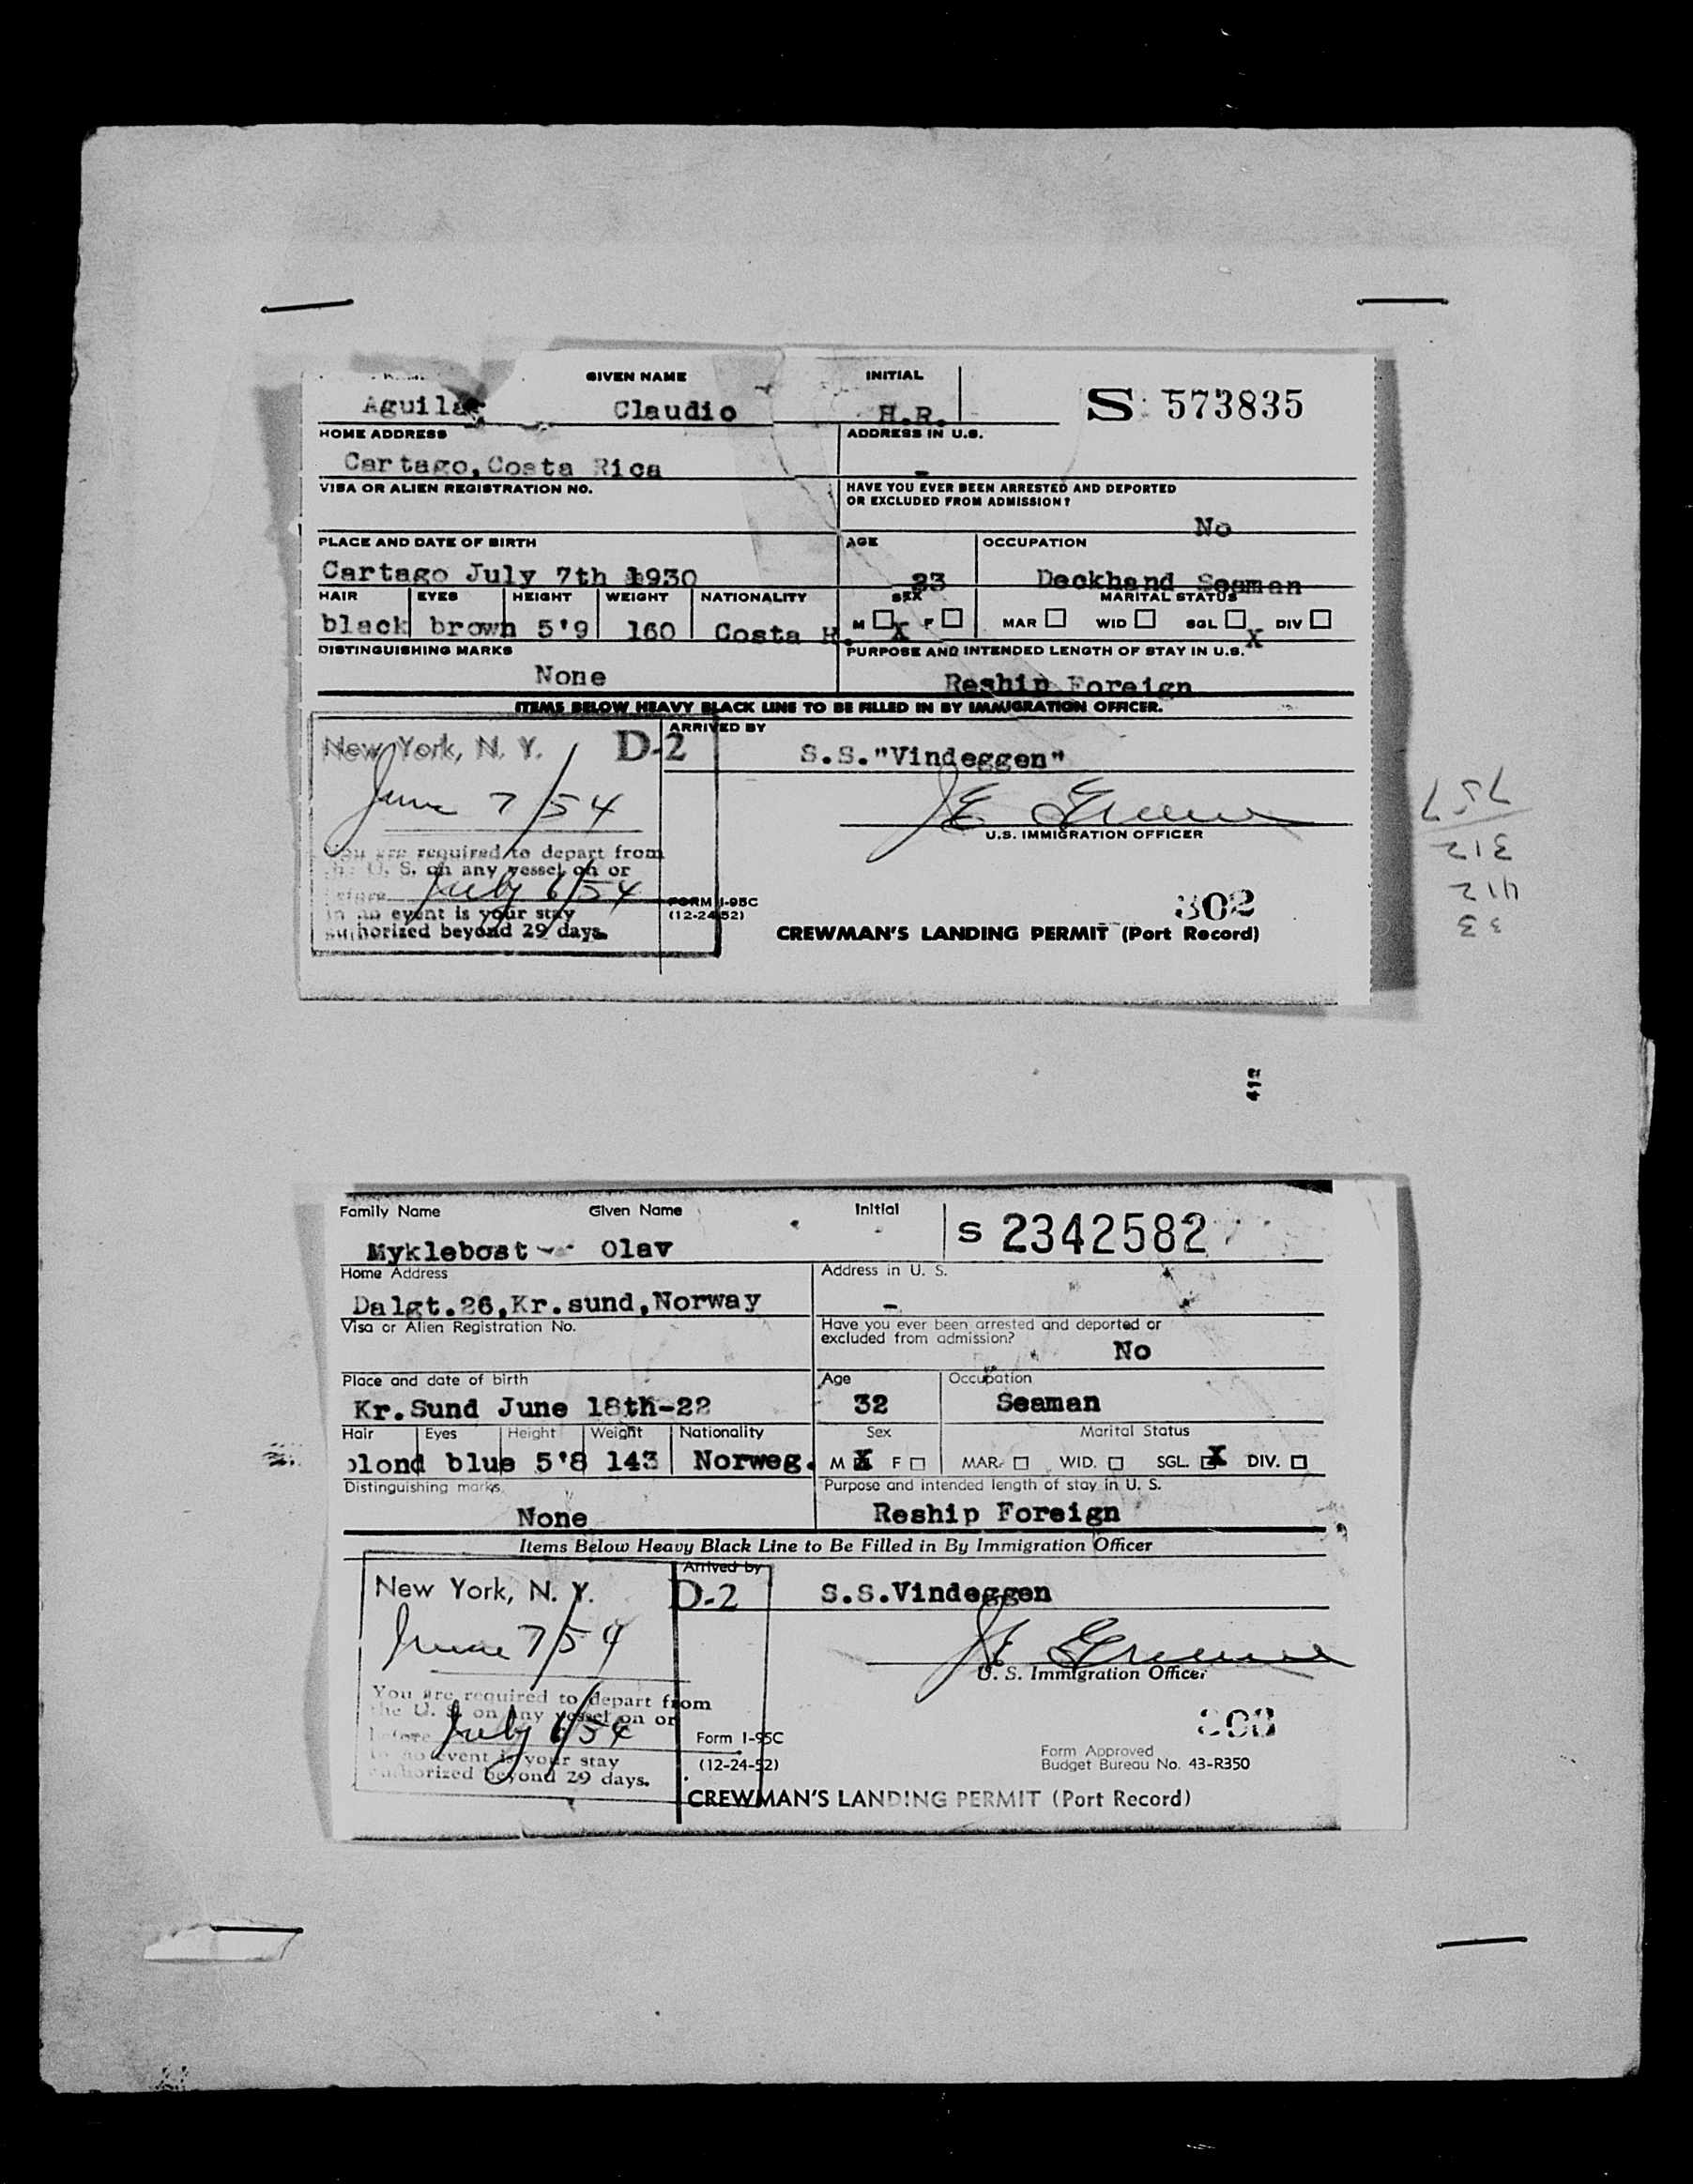 GIVEN NAME INITIAL
Aguilar Claudio H.R. S 573835
HOME ADDRESS ADDRESS IN U.S.
Cartago, Costa Rica -
VISA OR ALIEN REGISTRATION NO. HAVE YOU EVER BEEN ARRESTED AND DEPORTED
OR EXCLUDED FROM ADMISSION?
No
PLACE AND DATE OF BIRTH AGE OCCUPATION
Cartago July 7th 1930 23 Deckhand Seaman
HAIR EYES HEIGHT WEIGHT NATIONALITY SEX MARITAL STATUS
black brown 5'9 160 Costa R. M X F MAR WID SGL X DIV
DISTINGUISHING MARKS PURPOSE AND INTENDED LENGTH OF STAY IN U.S.
None Reship Foreign
ITEMS BELOW HEAVY BLACK LINE TO BE FILLED IN BY IMMIGRATION OFFICER.
ARRIVED BY
New York, N. Y. D-2 S.S."Vindeggen"
June 7/54 JE Greene
U.S. IMMIGRATION OFFICER
You are required to depart from
the U. S. on any vessel on or
before July 6/54
in no event is your stay
authorized beyond 29 days.
FORM I-95C
(12-24-52)
302
CREWMAN'S LANDING PERMIT (Port Record)
757
312
412
33
412
Family Name Given Name Initial
Myklebost - Olav - S 2342582
Home Address Address in U. S.
Dalgt.26,Kr.sund,Norway -
Visa or Alien Registration No. Have you ever been arrested and deported or
excluded from admission?
No
Place and date of birth Age Occupation
Kr.Sund June 18th-22 32 Seaman
Hair Eyes Height Weight Nationality Sex Marital Status
blond blue 5'8 143 Norweg. M X F MAR. WID. SGL. X DIV.
Distinguishing marks Purpose and intended length of stay in U. S.
None Reship Foreign
Items Below Heavy Black Line to Be Filled in By Immigration Officer
Arrived by
New York, N. Y. D-2 S.S.Vindeggen
June 7/54 JE Greene
U. S. Immigration Officer
You are required to depart from
the U. S. on any vessel on or
before July 6/54
in no event is your stay
authorized beyond 29 days.
Form I-95C
(12-24-52)
Form Approved
Budget Bureau No. 43-R350
CREWMAN'S LANDING PERMIT (Port Record)